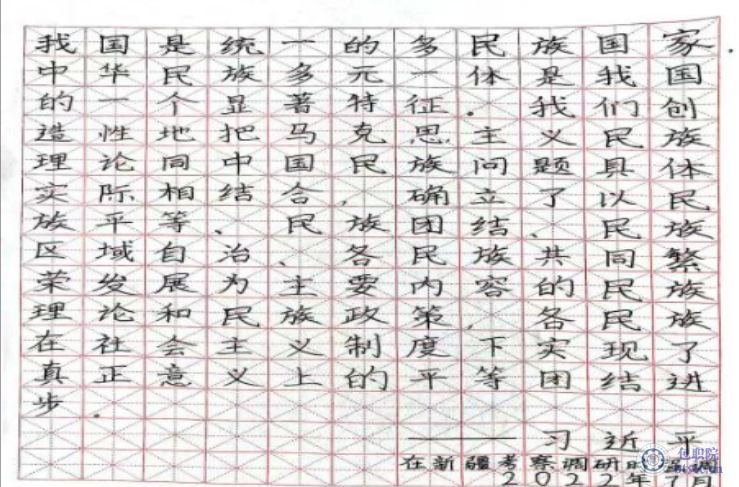 我国是统一的多民族国家.
中华民族多元一体是我国
的一个显著特征.我们创
造性地把马克思主义民族
理论同中国民族问题具体
实际相结合,确立了以民
族平等、民族团结、民族
区域自治、各民族共同繁
荣发展为主要内容的民族
理论和民族政策,各民族
在社会主义制度下实现了
真正意义上的平等团结进
步.
——习近平
在新疆考察调研时
2022年7月